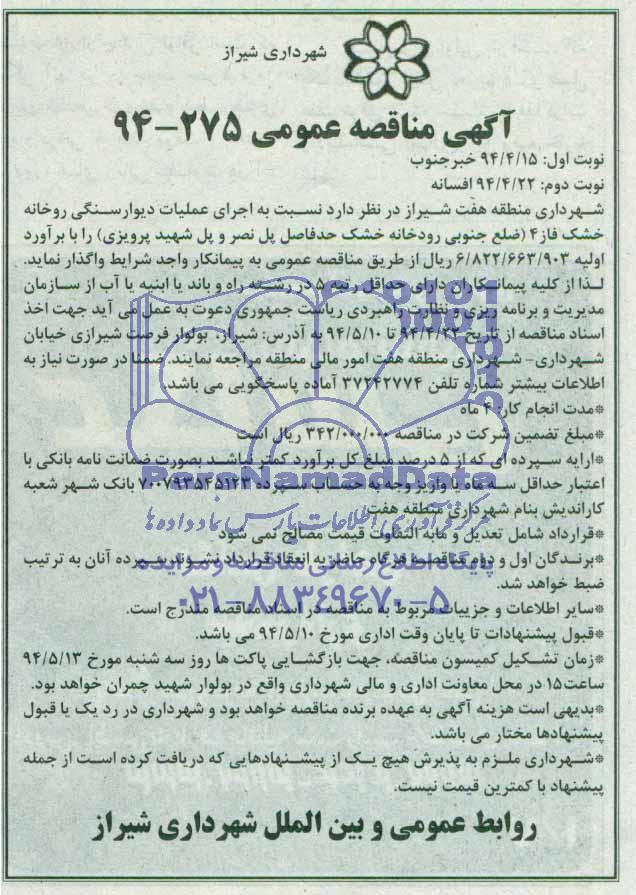 شهرداری شیراز
آگهی مناقصه عمومی ۲۷۵-۹۴
نوبت اول: ۹۴/۴/۱۵ خبرجنوب
نوبت دوم: ۹۴/۴/۲۲ افسانه
شهرداری منطقه هفت شیراز در نظر دارد نسبت به اجرای عملیات دیوارسنگی روخانه
خشک فاز۴ (ضلع جنوبی رودخانه خشک حدفاصل پل نصر و پل شهید پرویزی) را با برآورد
اولیه ۶/۸۲۲/۶۶۳/۹۰۳ ریال از طریق مناقصه عمومی به پیمانکار واجد شرایط واگذار نماید.
لـذا از کلیه پیمانکاران دارای حداقل رتبه ۵ در رشته راه و باند یا ابنیه یا آب از سازمان
مدیریت و برنامه ریزی و نظارت راهبردی ریاست جمهوری دعوت به عمل می آید جهت اخذ
اسناد مناقصه از تاریخ ۹۴/۴/۲۲ تا ۹۴/۵/۱۰ به آدرس: شیراز، بولوار فرصت شیرازی خیابان
شهرداری- شهرداری منطقه هفت امور مالی منطقه مراجعه نمایند. ضمنا در صورت نیاز به
اطلاعات بیشتر شماره تلفن ۳۷۲۴۲۷۷۴ آماده پاسخگویی می باشد.
*مدت انجام کار: ۴ ماه
*مبلغ تضمین شرکت در مناقصه ۳۴۲/۰۰۰/۰۰۰ ریال است
*ارایه سپرده ای که از ۵ درصد مبلغ کل برآورد کمتر نباشد بصورت ضمانت نامه بانکی با
اعتبار حداقل سه ماه یا واریز وجه به حساب سپرده ۷۰۰۷۹۳۵۴۵۱۲۳ بانک شهر شعبه
کاراندیش بنام شهرداری منطقه هفت
*قرارداد شامل تعدیل و مابه التفاوت قیمت مصالح نمی شود
*برندگان اول و دوم مناقصه هرگاه حاضر به انعقاد قرارداد نشوند سپرده آنان به ترتیب
ضبط خواهد شد.
*سایر اطلاعات و جزییات مربوط به مناقصه در اسناد مناقصه مندرج است.
*قبول پیشنهادات تا پایان وقت اداری مورخ ۹۴/۵/۱۰ می باشد.
*زمان تشکیل کمیسون مناقصه، جهت بازگشایی پاکت ها روز سه شنبه مورخ ۹۴/۵/۱۳
ساعت۱۵ در محل معاونت اداری و مالی شهرداری واقع در بولوار شهید چمران خواهد بود.
*بدیهی است هزینه آگهی به عهده برنده مناقصه خواهد بود و شهرداری در رد یک یا قبول
پیشنهادها مختار می باشد.
*شهرداری ملزم به پذیرش هیچ یک از پیشنهادهایی که دریافت کرده است از جمله
پیشنهاد با کمترین قیمت نیست.
روابط عمومی و بین الملل شهرداری شیراز
ParsNamadData
مرکز فرآوری اطلاعات پارس نماد داده ها
پایگاه اطلاع رسانی مناقصه و مزایده
۰۲۱-۸۸۳۴۹۶۷۰-۵